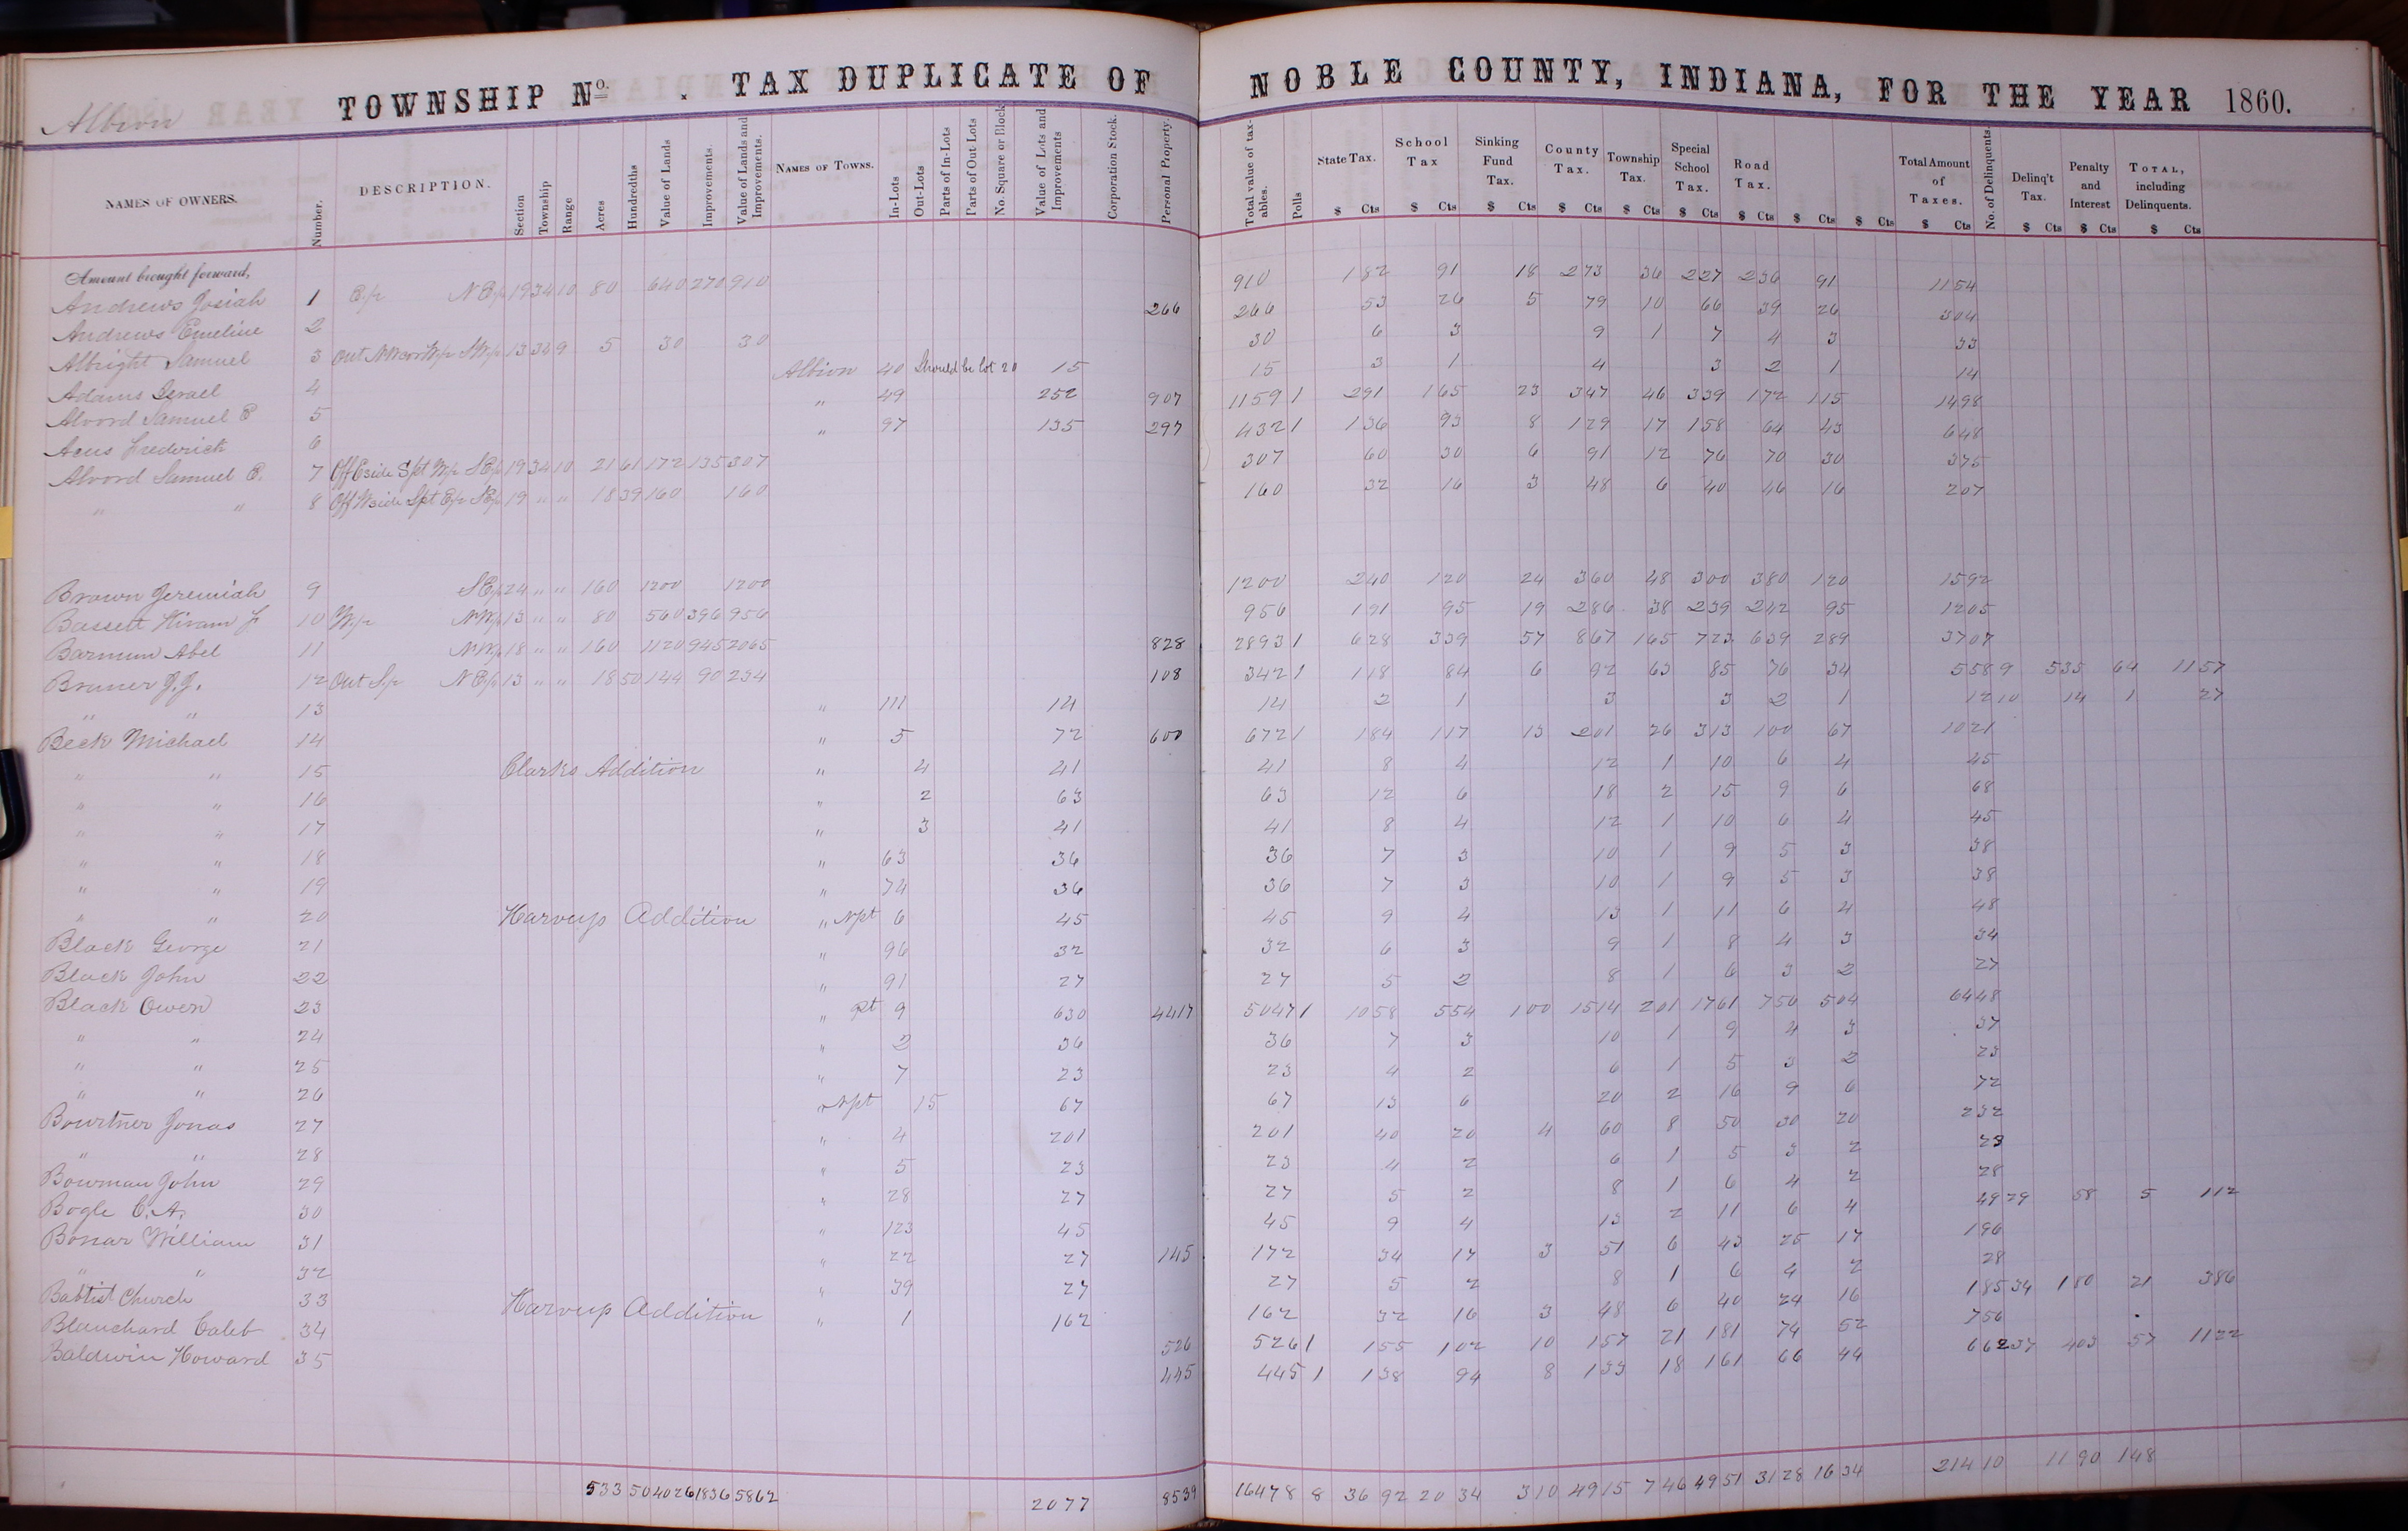 Albion
TOWNSHIP No. . TAX DUPLICATE OF NOBLE COUNTY, INDIANA, FOR THE YEAR 1860.
NAMES OF OWNERS. Number. DESCRIPTION. Section Township Range Acres Hundredths Value of Lands Improvements. Value of Lands and Improvements. NAMES OF TOWNS. In-Lots Out-Lots Parts of In-Lots Parts of Out Lots No. Square or Block Value of Lots and Improvements Corporation Stock. Personal Property. Total value of taxables. Polls State Tax. School Tax Sinking Fund Tax. County Tax. Township Tax. Special School Tax. Road Tax. Total Amount of Taxes. No. of Delinquents. Delinq't Tax. Penalty and Interest TOTAL, including Delinquents.
$ Cts $ Cts $ Cts $ Cts $ Cts $ Cts $ Cts $ Cts $ Cts $ Cts $ Cts $ Cts $ Cts
Amount brought forward,
Andrews Josiah 1 E/2 N E/4 19 34 10 80 640 270 910 910 182 91 18 273 36 227 236 91 1154
Andrews Emeline 2 266 266 53 26 5 79 10 66 39 26 304
Albright Samuel 3 Out NW cor W/2 SW/4 13 34 9 5 30 30 30 6 3 9 1 7 4 3 33
Adams Israel 4 Albion 40 Should be lot 20 15 15 3 1 4 3 2 1 14
Alvord Samuel E 5 " 49 252 907 1159 1 291 165 23 347 46 339 172 115 1498
Acus Frederick 6 " 97 135 297 432 1 136 93 8 129 17 158 64 43 648
Alvord Samuel E. 7 Off E side S pt W/2 SE/4 19 34 10 21 61 172 135 307 307 60 30 6 91 12 76 70 30 375
" " 8 Off W side S pt E/2 SE/4 19 " " 18 39 160 160 160 32 16 3 48 6 40 46 16 207
Brown Jeremiah 9 SE/4 24 " " 160 1200 1200 1200 240 120 24 360 48 300 380 120 1592
Bassett Hiram J 10 W/2 NW/4 13 " " 80 560 396 956 956 191 95 19 286 38 239 242 95 1205
Barnum Abel 11 NW/4 18 " " 160 1120 945 2065 828 2893 1 628 339 57 867 165 723 639 289 3707
Bruner J.J. 12 Out S/2 N E/4 13 " " 18 50 144 90 234 108 342 1 118 84 6 92 63 85 76 34 558 9 535 64 1157
" " 13 " 111 14 14 2 1 3 3 2 1 12 10 14 1 27
Beck Michael 14 " 5 72 600 672 1 184 117 13 201 26 313 100 67 1021
" " 15 Clarks Addition " 4 41 41 8 4 12 1 10 6 4 45
" " 16 " 2 63 63 12 6 18 2 15 9 6 68
" " 17 " 3 41 41 8 4 12 1 10 6 4 45
" " 18 " 63 36 36 7 3 10 1 9 5 3 38
" " 19 " 74 36 36 7 3 10 1 9 5 3 38
" " 20 Harveys Addition " N pt 6 45 45 9 4 13 1 11 6 4 48
Black George 21 " 96 32 32 6 3 9 1 8 4 3 34
Black John 22 " 91 27 27 5 2 8 1 6 3 2 27
Black Owen 23 " pt 9 630 4417 5047 1 1058 554 100 1514 201 1761 750 504 6448
" " 24 " 2 36 36 7 3 10 1 9 4 3 37
" " 25 " 7 23 23 4 2 6 1 5 3 2 23
" " 26 " N pt 15 67 67 13 6 20 2 16 9 6 72
Bourtner Jonas 27 " 4 201 201 40 20 4 60 8 50 30 20 232
" " 28 " 5 23 23 4 2 6 1 5 3 2 23
Bowman John 29 " 28 27 27 5 2 8 1 6 4 2 28
Bogle C. A. 30 " 123 45 45 9 4 13 2 11 6 4 49 29 58 5 112
Bonar William 31 " 22 27 145 172 34 17 3 51 6 43 25 17 196
" " 32 " 39 27 27 5 2 8 1 6 4 2 28
Babtist Church 33 Harveys Addition " 1 162 162 32 16 3 48 6 40 24 16 185 34 180 21 386
Blanchard Caleb 34 526 526 1 155 102 10 157 21 181 74 52 756
Baldwin Howard 35 445 445 1 138 94 8 133 18 161 66 44 662 37 403 57 1122
533 50 4026 1836 5862 2077 8539 16478 8 36 92 20 34 3 10 49 15 7 46 49 51 31 28 16 34 214 10 11 90 148